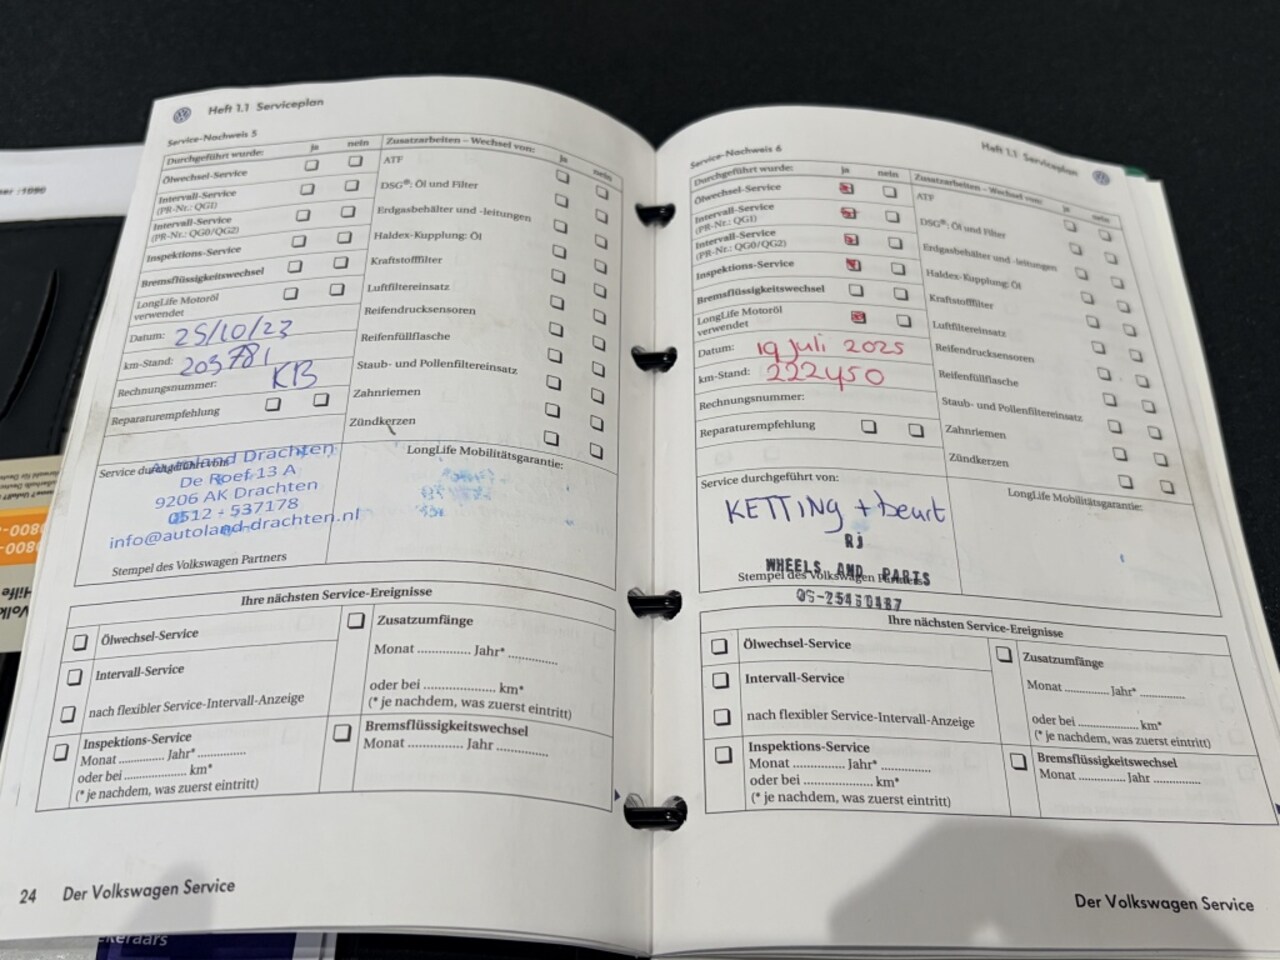 Heft 1.1 Serviceplan
Service-Nachweis 5
Durchgeführt wurde: ja nein
Ölwechsel-Service
Intervall-Service
(PR-Nr.: QG1)
Intervall-Service
(PR-Nr.: QG0/QG2)
Inspektions-Service
Bremsflüssigkeitswechsel
LongLife Motoröl
verwendet
Datum: 25/10/23
km-Stand: 203781
Rechnungsnummer: KB
Reparaturempfehlung
Zusatzarbeiten – Wechsel von: ja nein
ATF
DSG®: Öl und Filter
Erdgasbehälter und -leitungen
Haldex-Kupplung: Öl
Kraftstofffilter
Luftfiltereinsatz
Reifendrucksensoren
Reifenfüllflasche
Staub- und Pollenfiltereinsatz
Zahnriemen
Zündkerzen
Service durchgeführt von:
Autoland Drachten
De Roef 13 A
9206 AK Drachten
0512 - 537178
info@autoland-drachten.nl
Stempel des Volkswagen Partners
LongLife Mobilitätsgarantie:
Ihre nächsten Service-Ereignisse
Ölwechsel-Service
Intervall-Service
nach flexibler Service-Intervall-Anzeige
Inspektions-Service
Monat .............. Jahr* ..............
oder bei .................... km*
(* je nachdem, was zuerst eintritt)
Zusatzumfänge
Monat .............. Jahr* ..............
oder bei .................... km*
(* je nachdem, was zuerst eintritt)
Bremsflüssigkeitswechsel
Monat .............. Jahr ..............
24 Der Volkswagen Service
Heft 1.1 Serviceplan
Service-Nachweis 6
Durchgeführt wurde: ja nein
Ölwechsel-Service
Intervall-Service
(PR-Nr.: QG1)
Intervall-Service
(PR-Nr.: QG0/QG2)
Inspektions-Service
Bremsflüssigkeitswechsel
LongLife Motoröl
verwendet
Datum: 19 juli 2025
km-Stand: 222450
Rechnungsnummer:
Reparaturempfehlung
Zusatzarbeiten – Wechsel von: ja nein
ATF
DSG®: Öl und Filter
Erdgasbehälter und -leitungen
Haldex-Kupplung: Öl
Kraftstofffilter
Luftfiltereinsatz
Reifendrucksensoren
Reifenfüllflasche
Staub- und Pollenfiltereinsatz
Zahnriemen
Zündkerzen
Service durchgeführt von:
KETTING + beurt
RJ
WHEELS AND PARTS
Stempel des Volkswagen Partners
LongLife Mobilitätsgarantie:
Ihre nächsten Service-Ereignisse
Ölwechsel-Service
Intervall-Service
nach flexibler Service-Intervall-Anzeige
Inspektions-Service
Monat .............. Jahr* ..............
oder bei .................... km*
(* je nachdem, was zuerst eintritt)
Zusatzumfänge
Monat .............. Jahr* ..............
oder bei .................... km*
(* je nachdem, was zuerst eintritt)
Bremsflüssigkeitswechsel
Monat .............. Jahr ..............
Der Volkswagen Service